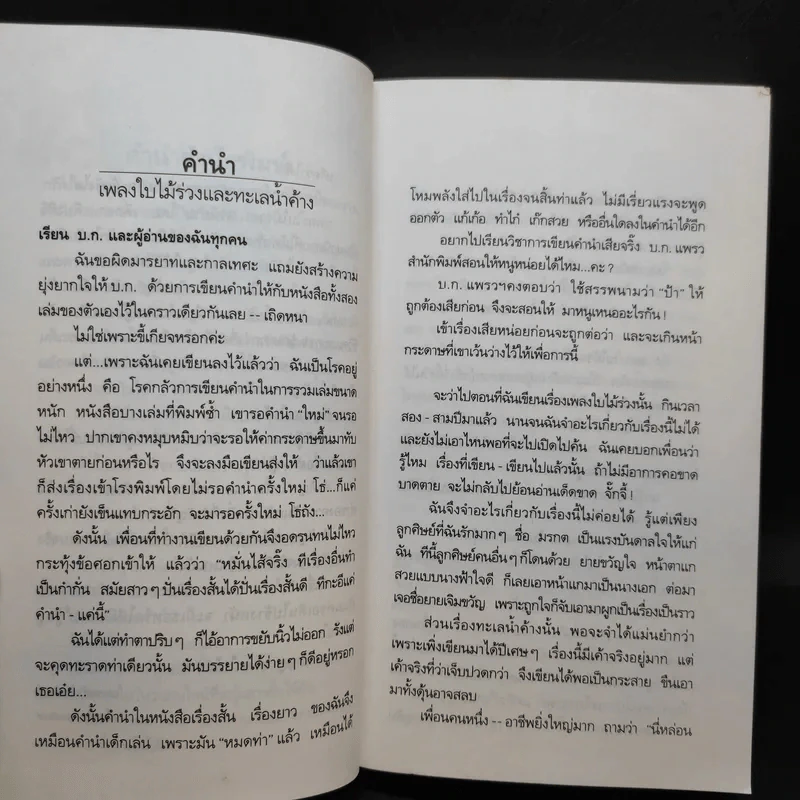 คำนำ
เพลงใบไม้ร่วงและทะเลน้ำค้าง
เรียน บ.ก. และผู้อ่านของฉันทุกคน
ฉันขอผิดมารยาทและกาลเทศะ แถมยังสร้างความ
ยุ่งยากใจให้ บ.ก. ด้วยการเขียนคำนำให้กับหนังสือทั้งสอง
เล่มของตัวเองไว้ในคราวเดียวกันเลย -- เถิดหนา
ไม่ใช่เพราะขี้เกียจหรอกค่ะ
แต่...เพราะฉันเคยเขียนลงไว้แล้วว่า ฉันเป็นโรคอยู่
อย่างหนึ่ง คือ โรคกลัวการเขียนคำนำในการรวมเล่มขนาด
หนัก หนังสือบางเล่มที่พิมพ์ซ้ำ เขารอคำนำ “ใหม่” จนรอ
ไม่ไหว ปากเขาคงหมุบหมิบว่าจะรอให้ค่ากระดาษขึ้นมาทับ
หัวเขาตายก่อนหรือไร จึงจะลงมือเขียนส่งให้ ว่าแล้วเขา
ก็ส่งเรื่องเข้าโรงพิมพ์โดยไม่รอคำนำครั้งใหม่ โธ่...ก็แค่
ครั้งเก่ายังเข็นแทบกระอัก จะมารอครั้งใหม่ โธ่ถัง...
ดังนั้น เพื่อนที่ทำงานเขียนด้วยกันจึงอดรนทนไม่ไหว
กระทุ้งข้อศอกเข้าให้ แล้วว่า “หมั่นไส้จริ๊ง ทีเรื่องอื่นทำ
เป็นกำกั่น สมัยสาวๆ ปั่นเรื่องสั้นได้ปั่นเรื่องสั้นดี ทีกะอีแค่
คำนำ - แค่นี้”
ฉันได้แต่ทำตาปริบๆ ก็ไอ้อาการขยับนิ้วไม่ออก รังแต่
จะคุดทะราดท่าเดียวนั้น มันบรรยายได้ง่ายๆ ก็ดีอยู่หรอก
เธอเอ๋ย...
ดังนั้นคำนำในหนังสือเรื่องสั้น เรื่องยาว ของฉันจึง
เหมือนคำนำเด็กเล่น เพราะมัน “หมดท่า” แล้ว เหมือนได้
โหมพลังใส่ไปในเรื่องจนสิ้นท่าแล้ว ไม่มีเรี่ยวแรงจะพูด
ออกตัว แก้เก้อ ทำไก๋ เก๊กสวย หรืออื่นใดลงในคำนำได้อีก
อยากไปเรียนวิชาการเขียนคำนำเสียจริ๊ง บ.ก. แพรว
สำนักพิมพ์สอนให้หนูหน่อยได้ไหม...คะ ?
บ.ก. แพรวฯคงตอบว่า ใช้สรรพนามว่า “ป้า” ให้
ถูกต้องเสียก่อน จึงจะสอนให้ มาหนูเหนออะไรกัน !
เข้าเรื่องเสียหน่อยก่อนจะถูกต่อว่า และจะเกินหน้า
กระดาษที่เขาเว้นว่างไว้ให้เพื่อการนี้
จะว่าไปตอนที่ฉันเขียนเรื่องเพลงใบไม้ร่วงนั้น กินเวลา
สอง - สามปีมาแล้ว นานจนฉันจำอะไรเกี่ยวกับเรื่องนี้ไม่ได้
และยังไม่เอาไหนพอที่จะไปเปิดไปค้น ฉันเคยบอกเพื่อนว่า
รู้ไหม เรื่องที่เขียน - เขียนไปแล้วนั้น ถ้าไม่มีอาการคอขาด
บาดตาย จะไม่กลับไปย้อนอ่านเด็ดขาด จั๊กจี้ !
ฉันจึงจำอะไรเกี่ยวกับเรื่องนี้ไม่ค่อยได้ รู้แต่เพียง
ลูกศิษย์ที่ฉันรักมากๆ ชื่อ มรกต เป็นแรงบันดาลใจให้แก่
ฉัน ทีนี้ลูกศิษย์คนอื่นๆ ก็โดนด้วย ยายขวัญใจ หน้าตาแก
สวยแบบนางฟ้าใจดี ก็เลยเอาหน้าแกมาเป็นนางเอก ต่อมา
เจอชื่อยายเจิมขวัญ เพราะถูกใจก็จับเอามาผูกเป็นเรื่องเป็นราว
ส่วนเรื่องทะเลน้ำค้างนั้น พอจะจำได้แม่นยำกว่า
เพราะเพิ่งเขียนมาได้ปีเศษๆ เรื่องนี้มีเค้าจริงอยู่มาก แต่
เค้าจริงที่ว่าเจ็บปวดกว่า จึงเขียนได้พอเป็นกระสาย ขืนเอา
มาทั้งดุ้นอาจสลบ
เพื่อนคนหนึ่ง -- อาชีพยิ่งใหญ่มาก ถามว่า “นี่หล่อน